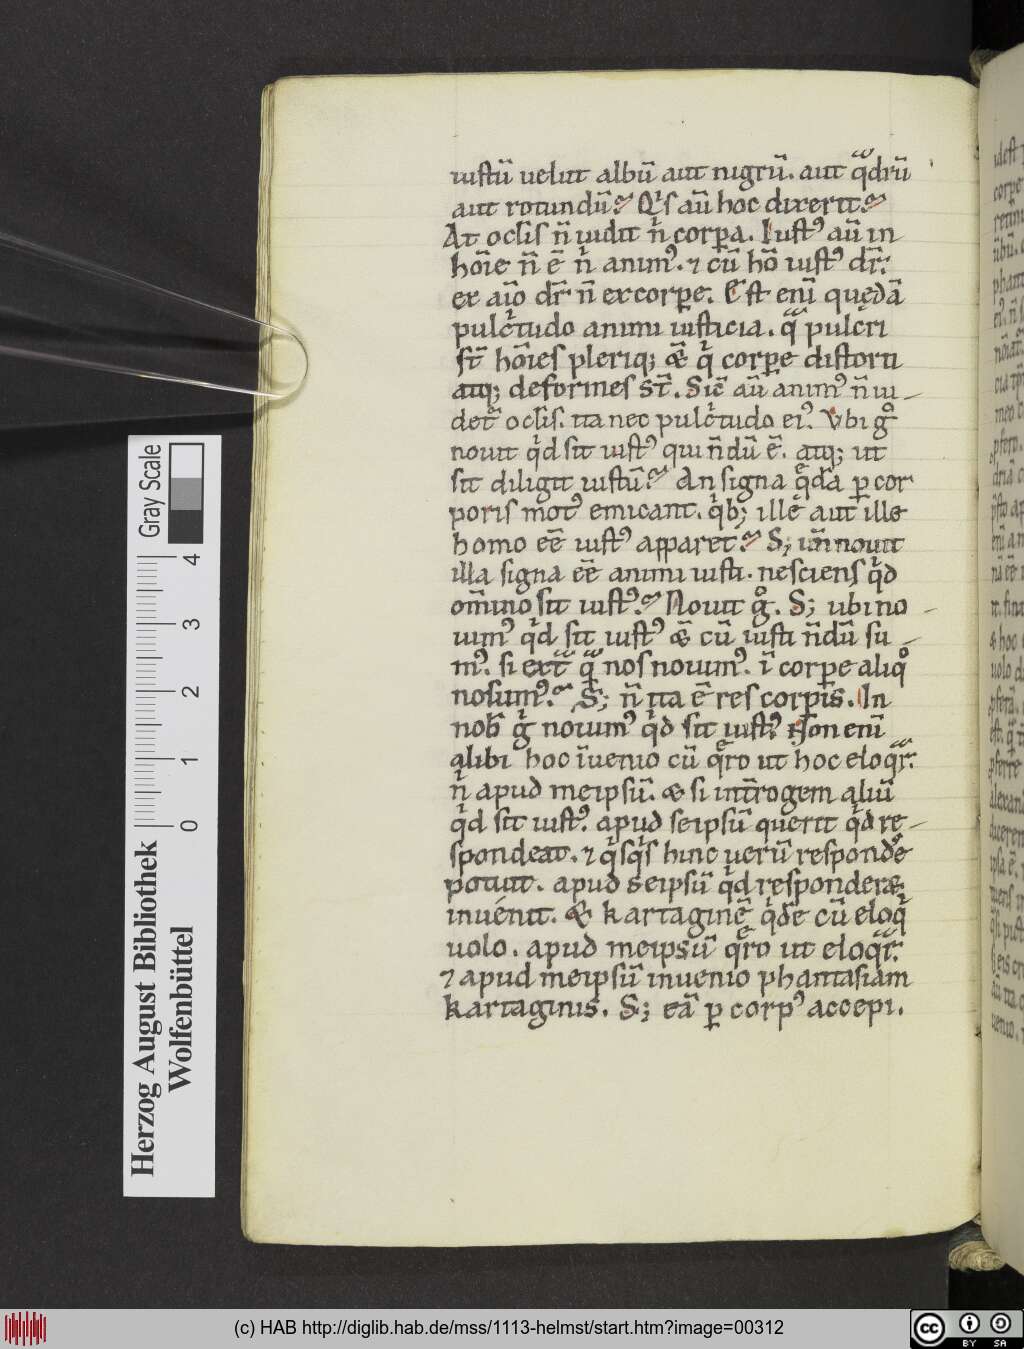 iustū uelut albū aut nigrū. aut qͣdrū
aut rotundū? Qͥs aū hoc dixerit?
At oclīs n̄ uidit nͥ corꝑa. Iustꝰ aū in
hōie n̄ ē nͥ animꝰ. ⁊ cū hō iustꝰ dr̄.
ex aīo dr̄ n̄ ex corꝑe. Est enī quędā
pulcͥtudo animi iusticia. qͣ pulcri
st̄ hōies pleriq; & qͥ corꝑe distorti
atq; deformes st̄. Sic̄ aū animꝰ n̄ ui-
det᷑ oclīs. ita nec pulcͥtudo eiꝰ. Vbi gͦ
nouit qͥd sit iustꝰ qui n̄dū ē. atq; ut
sit diligit iustū? An signa qͥdā ꝑ cor
poris motꝰ emicant. qͥb; ille aut ille
homo eē iustꝰ apparet? S; un̄ nouit
illa signa eē animi iusti. nesciens qͥd
om̄ino sit iustꝰ? Nouit gͦ. S; ubi no-
uimꝰ qͥd sit iustꝰ & cū iusti n̄dū su-
mꝰ. si ext̄ qͣ nos nouimꝰ. ī corꝑe aliqͦ
nosumꝰ? S; n̄ ita ē res corꝑis. In
nob̄ gͥ nouimꝰ qͥd sit iustꝰ. Non enī
alibi hoc īuenio cū qͤro ut hoc eloqͣr.
nͥ apud meipsū. & si int̄rogem aliū
qͥd sit iustꝰ. apud seipsū querit qͥd re-
spondeat. ⁊ qͥsqͥs hinc uerū respondē
potuit. apud seipsū qͥd responderet
inuenit. & kartaginē qͥdē cū eloqͥ
uolo. apud meipsū qͤro ut eloqͣr.
⁊ apud meipsū inuenio phantasiam
kartaginis. S; eā ꝑ corpꝰ accepi.
Gray Scale
4
3
2
1
0
Herzog August Bibliothek
Wolfenbüttel
(c) HAB http://diglib.hab.de/mss/1113-helmst/start.htm?image=00312
cc
BY SA